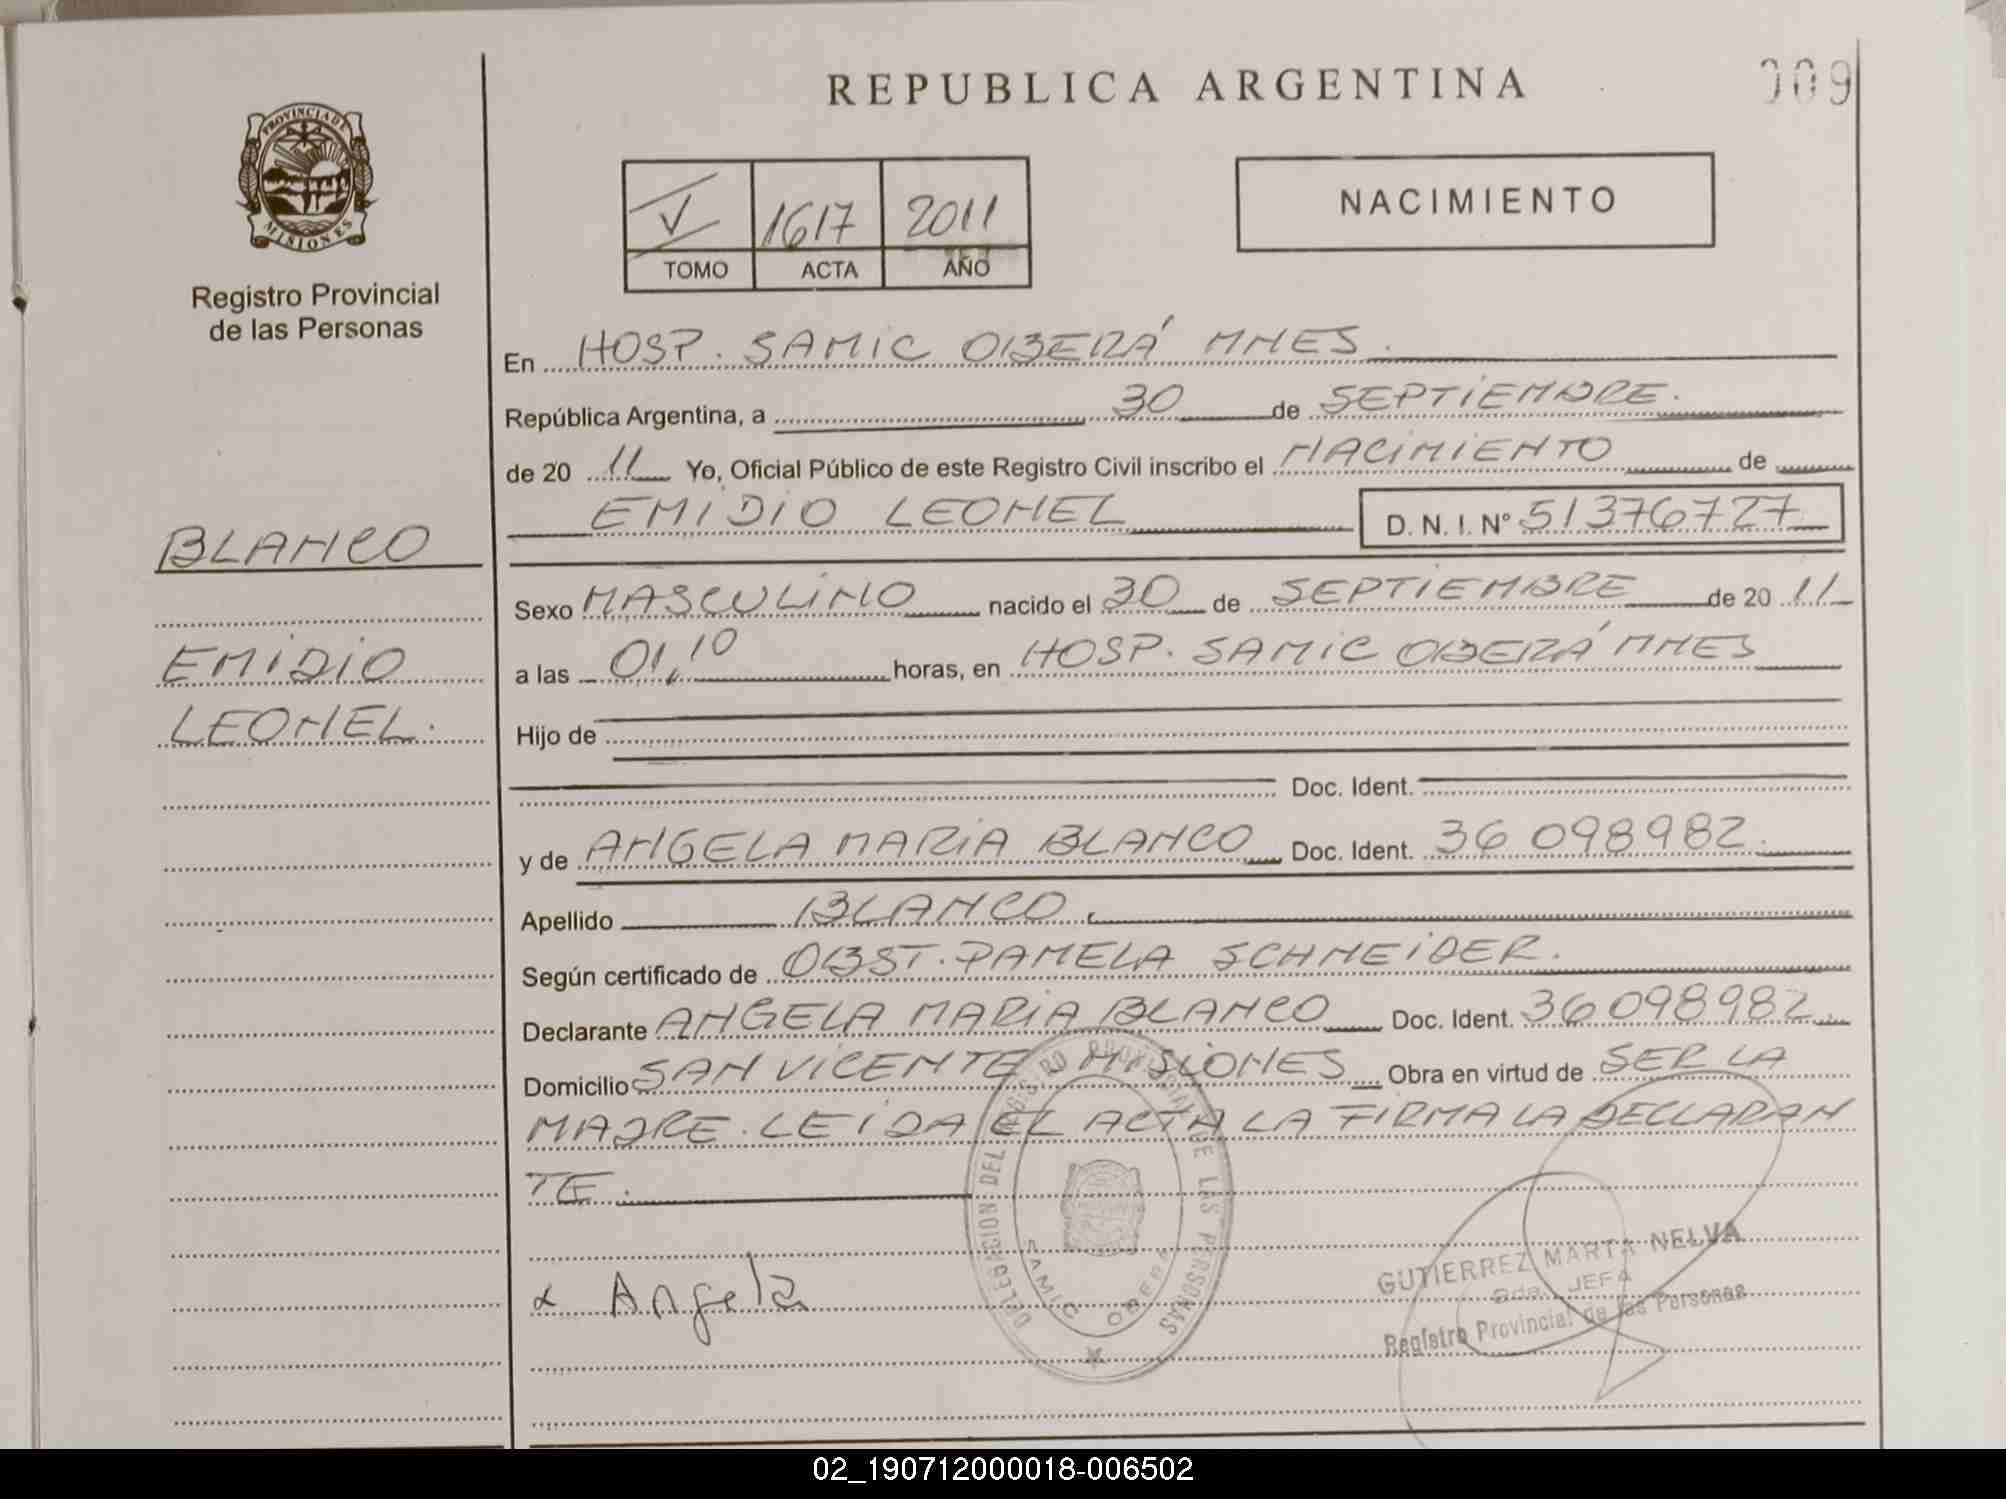 REPUBLICA ARGENTINA
009
PROVINCIA DE
MISIONES
Registro Provincial
de las Personas
V 1617 2011
TOMO ACTA AÑO
NACIMIENTO
En HOSP. SAMIC OBERÁ MNES.
República Argentina, a 30 de SEPTIEMBRE.
de 20 11 Yo, Oficial Público de este Registro Civil inscribo el NACIMIENTO de
EMIDIO LEONEL D. N. I. N° 51376727
BLANCO
EMIDIO
LEONEL.
Sexo MASCULINO nacido el 30 de SEPTIEMBRE de 20 11
a las 01,10 horas, en HOSP. SAMIC OBERÁ MNES
Hijo de
Doc. Ident.
y de ANGELA MARIA BLANCO Doc. Ident. 36 098982.
Apellido BLANCO.
Según certificado de OBST. PAMELA SCHNEIDER.
Declarante ANGELA MARIA BLANCO Doc. Ident. 36098982.
Domicilio SAN VICENTE MISIONES Obra en virtud de SER LA
MADRE. LEIDA EL ACTA LA FIRMA LA DECLARAN
TE.
Angela
DELEGACION DEL REGISTRO PROVINCIAL DE LAS PERSONAS
SAMIC OBERA
GUTIERREZ MARTA NELVA
2da. JEFA
Registro Provincial de las Personas
02_190712000018-006502